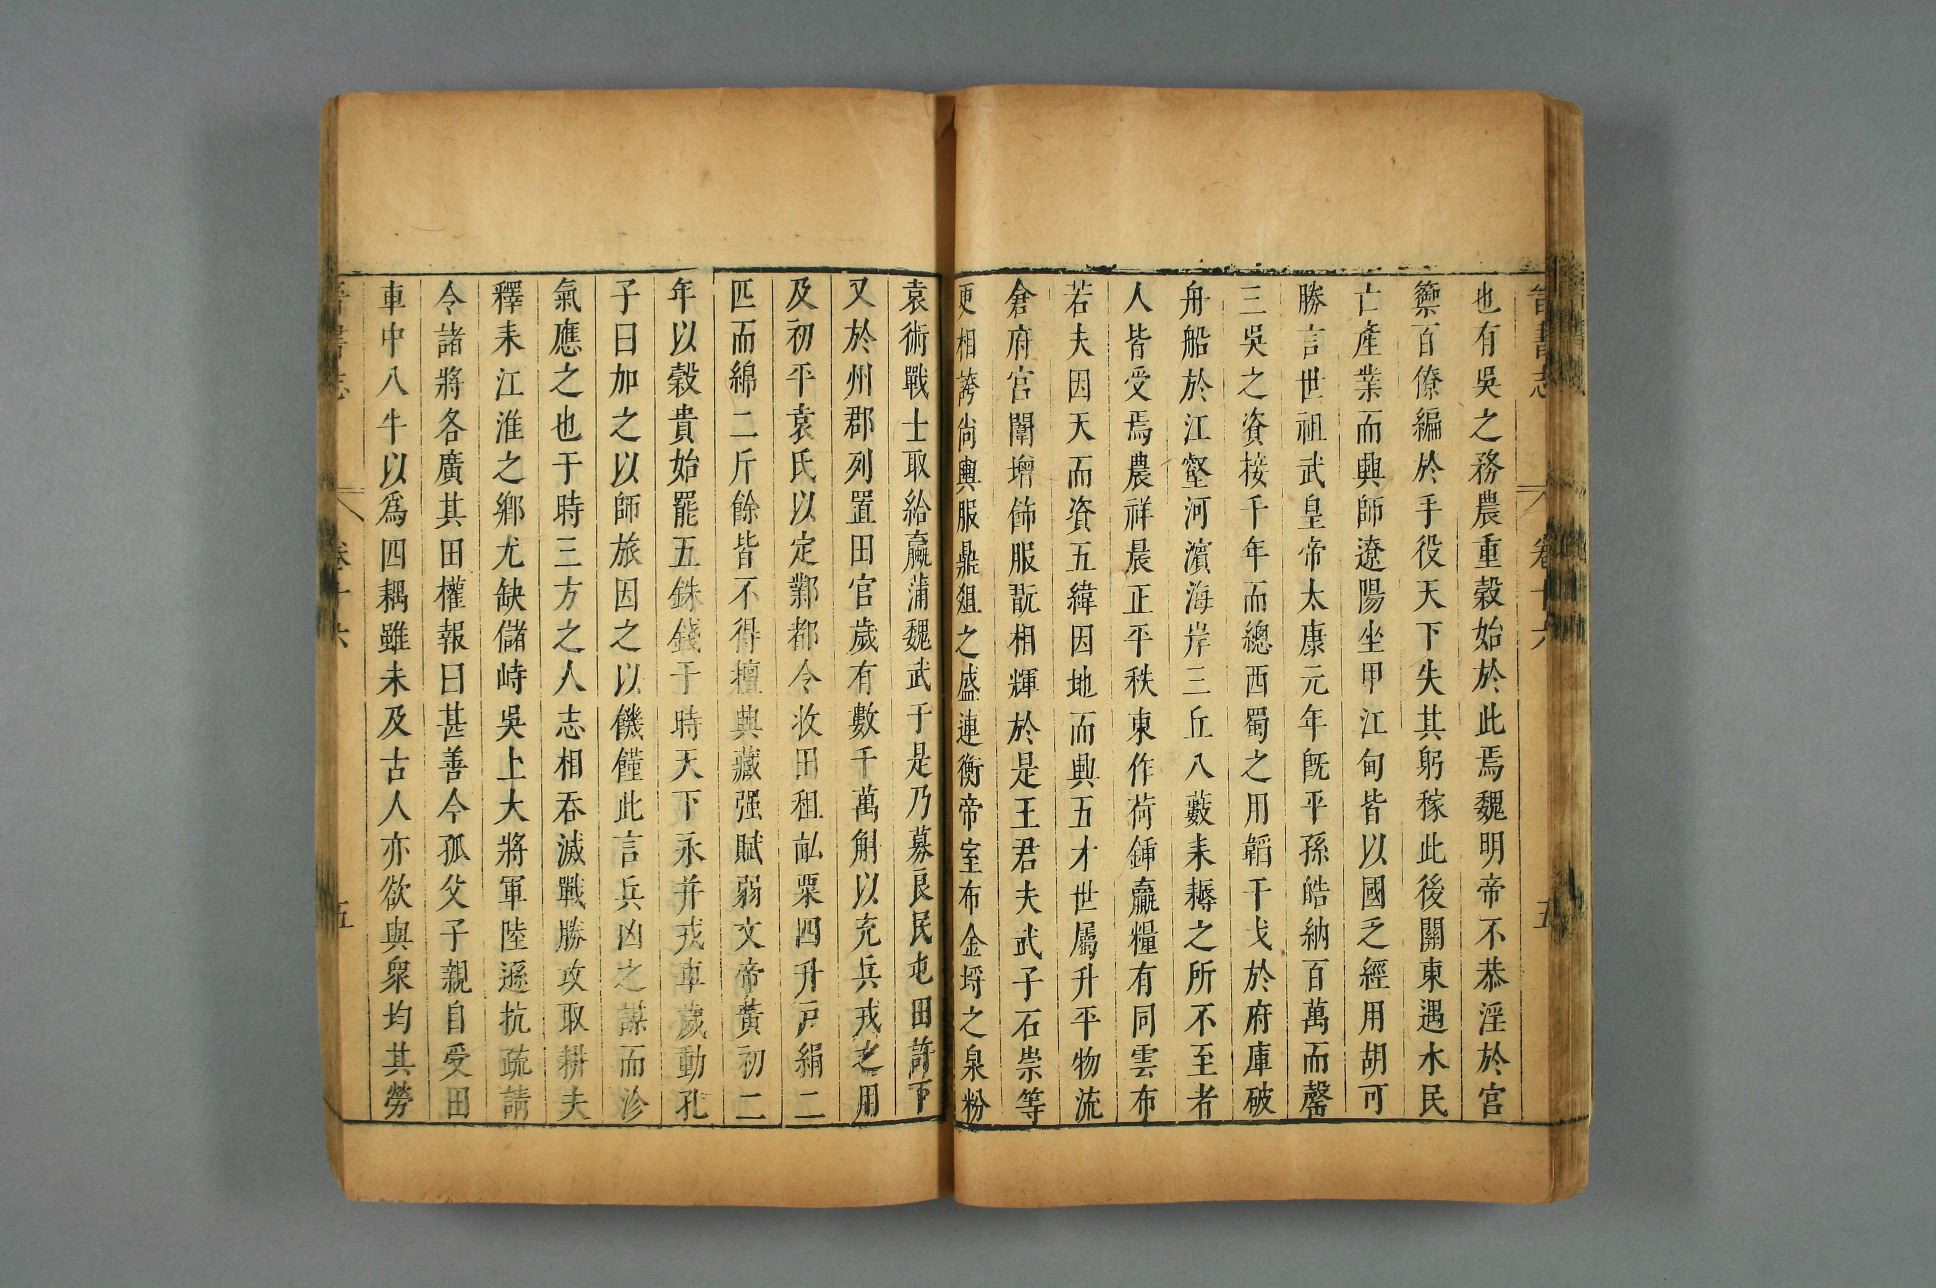 晉書志 卷十六 五
也有吳之務農重穀始於此焉魏明帝不恭淫於宮
籞百僚編於手役天下失其躬稼此後關東遇水民
亡產業而興師遼陽坐甲江甸皆以國乏經用胡可
勝言世祖武皇帝太康元年旣平孫皓納百萬而罄
三吳之資椄千年而總西蜀之用韜干戈於府庫破
舟船於江壑河濱海岸三丘八藪耒耨之所不至者
人皆受焉農祥晨正平秩東作荷鍤贏糧有同雲布
若夫因天而資五緯因地而興五才世屬升平物流
倉府宮闈增飾服翫相輝於是王君夫武子石崇等
更相誇尚輿服鼎俎之盛連衡帝室布金埒之泉粉
袁術戰士取給蠃蒲魏武于是乃募良民屯田許下
又於州郡列置田官歲有數千萬斛以充兵戎之用
及初平袁氏以定鄴都令收田租畝粟四升戸絹二
匹而綿二斤餘皆不得擅興藏强賦弱文帝黃初二
年以穀貴始罷五銖錢于時天下未并戎車歲動孔
子曰加之以師旅因之以饑饉此言兵凶之謀而沴
氣應之也于時三方之人志相吞滅戰勝攻取耕夫
釋耒江淮之鄉尤缺儲峙吳上大將軍陸遜抗疏請
令諸將各廣其田權報曰甚善今孤父子親自受田
車中八牛以爲四耦雖未及古人亦欲與衆均其勞
晉書志 卷十六 五